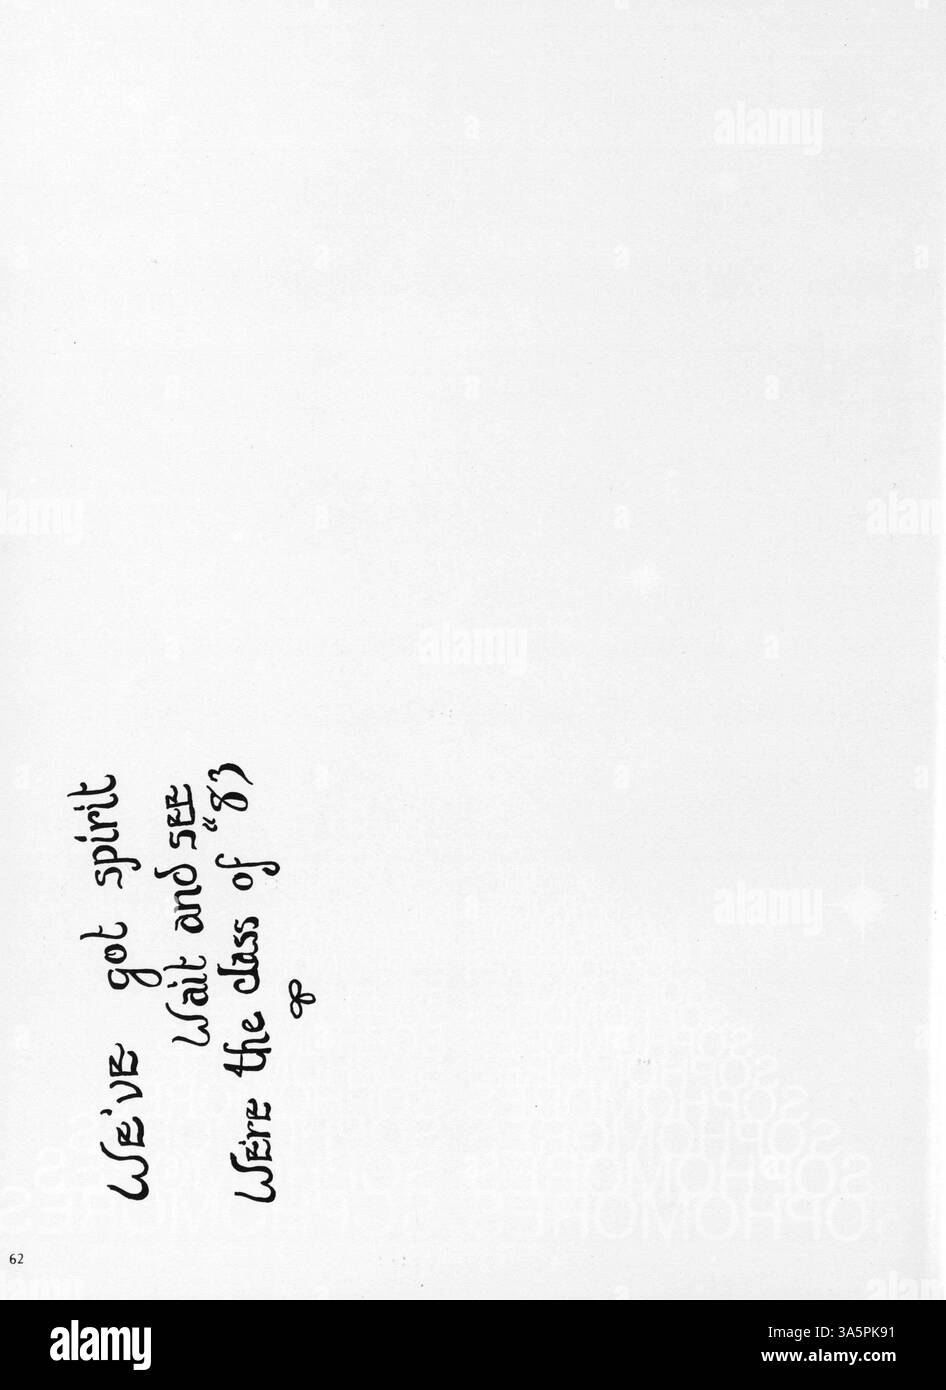 We've got spirit
Wait and see
We're the class of "83
62
SOPHOMORES
SOPHOMORES
SOPHOMORES
SOPHOMORES
SOPHOMORES
alamy
Image ID: 3A5PK91
www.alamy.com